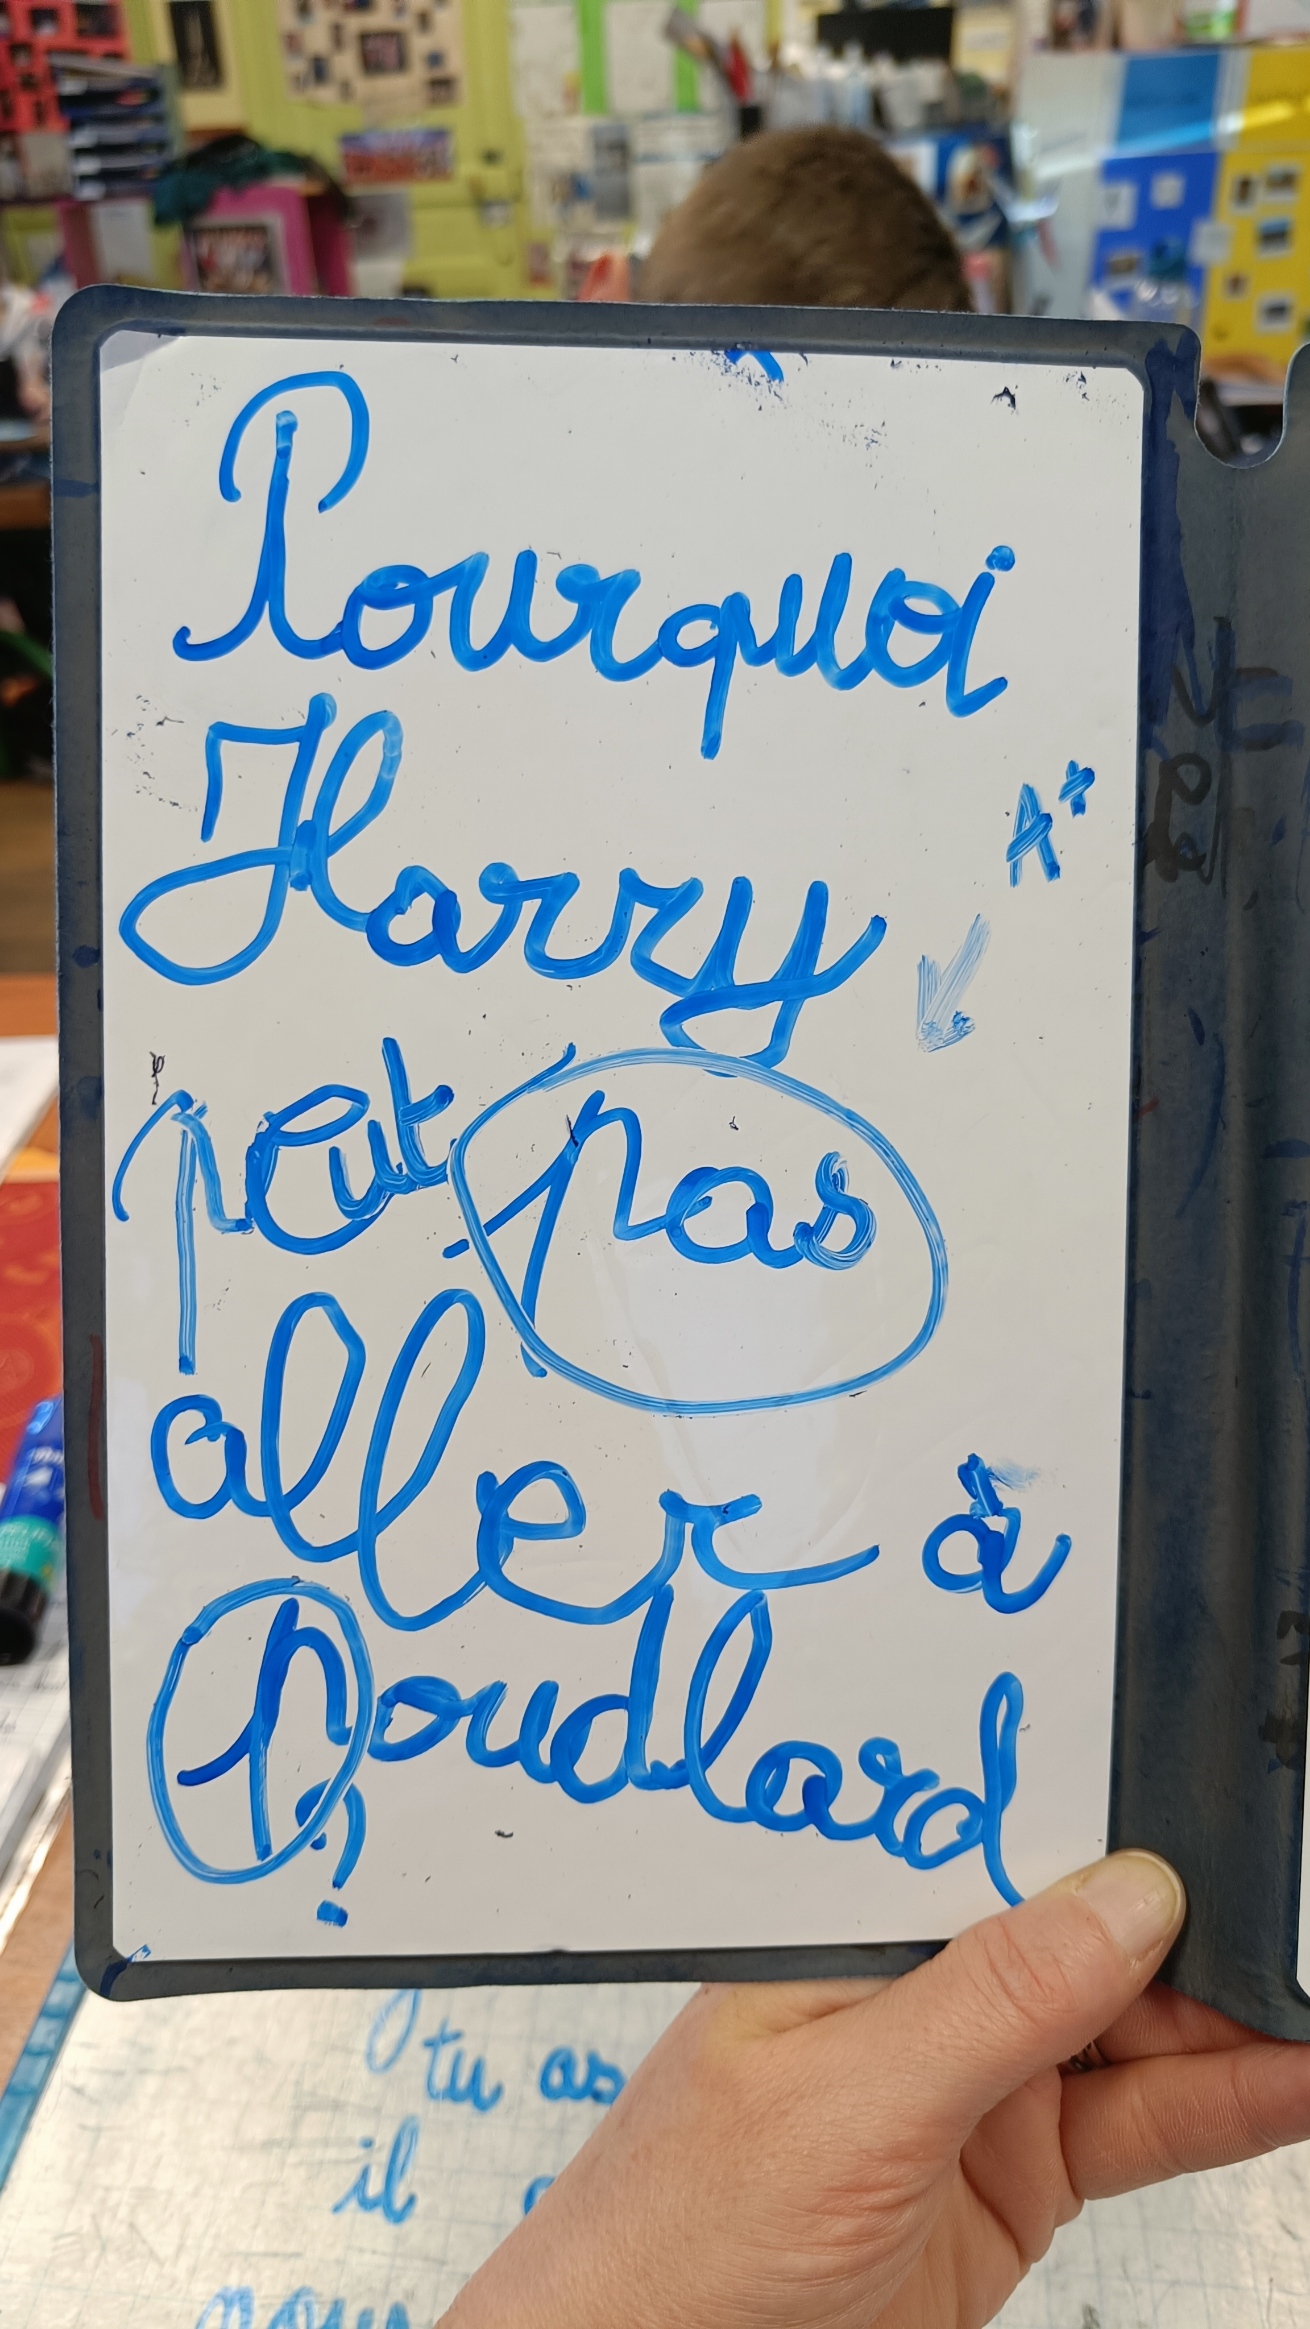 Pourquoi
Harry
A+
peut pas
aller à
poudlard
?
tu as
il
nous